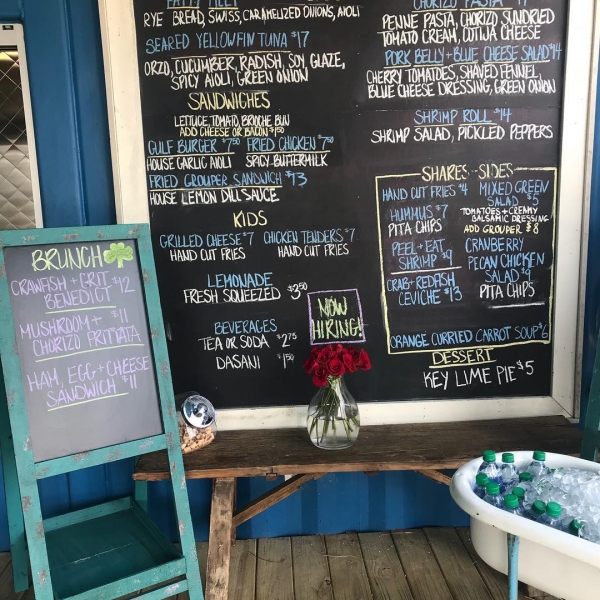 PATTY MELT
RYE BREAD, SWISS, CARAMELIZED ONIONS, AIOLI
SEARED YELLOWFIN TUNA $17
ORZO, CUCUMBER, RADISH, SOY, GLAZE,
SPICY AIOLI, GREEN ONION
SANDWICHES
LETTUCE, TOMATO, BRIOCHE BUN
ADD CHEESE OR BACON $1.50
GULF BURGER $7.50 FRIED CHICKEN $7.50
HOUSE GARLIC AIOLI SPICY BUTTERMILK
FRIED GROUPER SANDWICH $13
HOUSE LEMON DILL SAUCE
KIDS
GRILLED CHEESE $7 CHICKEN TENDERS $7
HAND CUT FRIES HAND CUT FRIES
LEMONADE
FRESH SQUEEZED $3.50
BEVERAGES
TEA OR SODA $2.75
DASANI $1.50
CHORIZO PASTA
PENNE PASTA, CHORIZO SUNDRIED
TOMATO CREAM, COTIJA CHEESE
PORK BELLY + BLUE CHEESE SALAD $14
CHERRY TOMATOES, SHAVED FENNEL,
BLUE CHEESE DRESSING, GREEN ONION
SHRIMP ROLL $14
SHRIMP SALAD, PICKLED PEPPERS
SHARES - SIDES
HAND CUT FRIES $4
HUMMUS $7
PITA CHIPS
PEEL + EAT
SHRIMP $9
CRAB + REDFISH
CEVICHE $13
MIXED GREEN
SALAD $5
TOMATOES + CREAMY
BALSAMIC DRESSING
ADD GROUPER $8
CRANBERRY
PECAN CHICKEN
SALAD $9
PITA CHIPS
ORANGE CURRIED CARROT SOUP $6
DESSERT
KEY LIME PIE $5
NOW
HIRING!
BRUNCH
CRAWFISH + GRIT $12
BENEDICT
MUSHROOM + $11
CHORIZO FRITTATA
HAM, EGG + CHEESE
SANDWICH $11